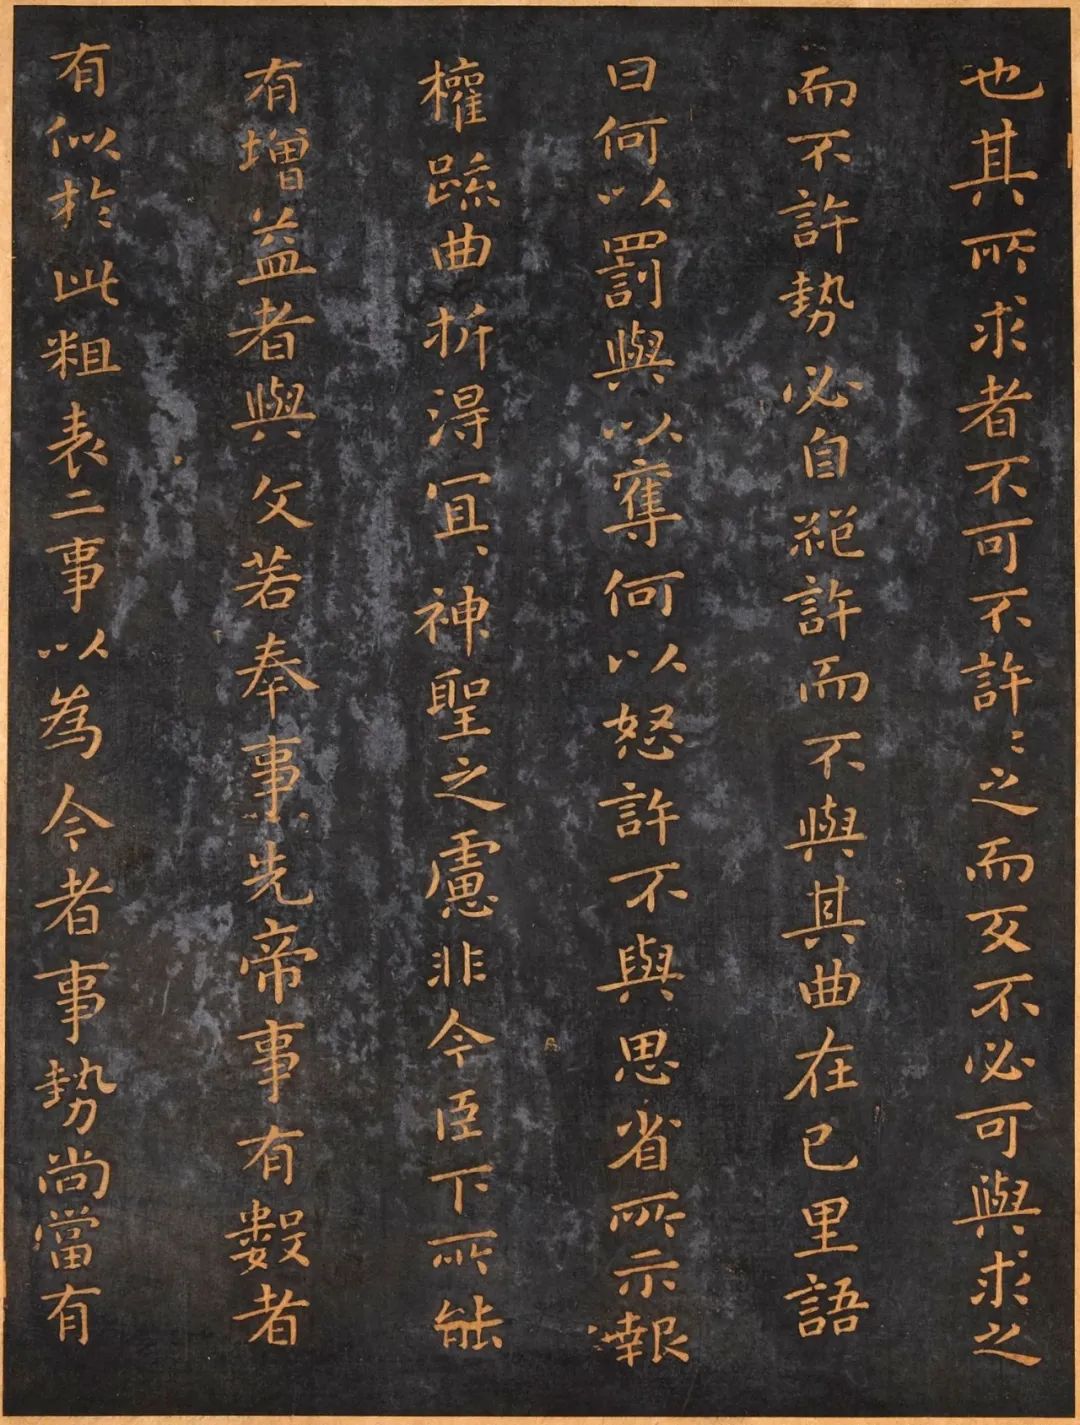 也其所求者不可不許〻之而反不必可與求之
而不許勢必自絕許而不與其曲在己里語
曰何以罰與以奪何以怒許不與思省所示報
權疏曲折得宜神聖之慮非今臣下所能
有增益者與文若奉事先帝事有數者
有似於此粗表二事以為今者事勢尚當有